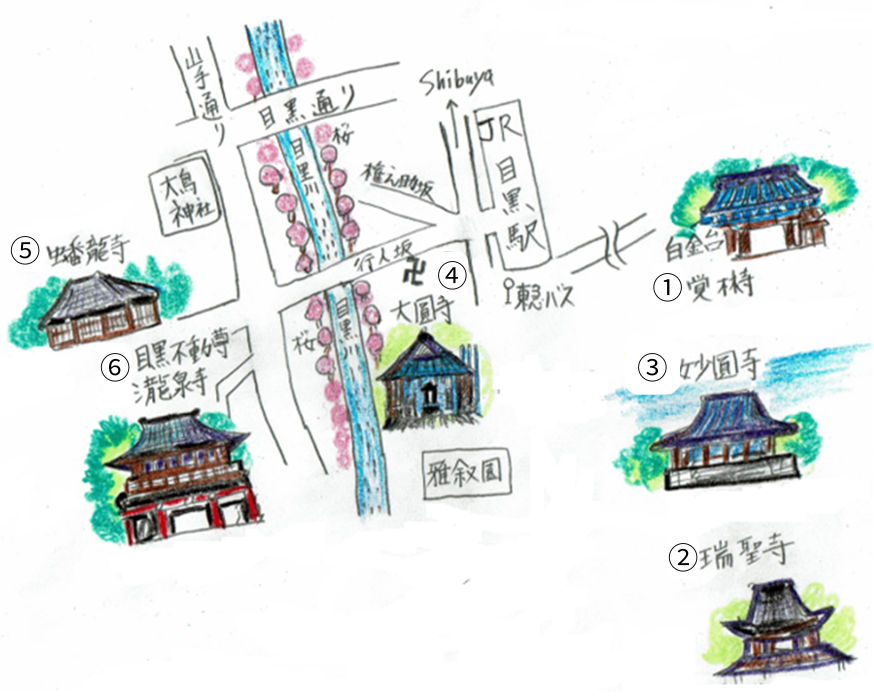 山手通り
目黒通り
Shibuya
JR目黒駅
桜
目黒川
大鳥
神社
権之助坂
白金台
① 覚林寺
⑤ 蟠龍寺
行人坂
卍
④
大圓寺
東急バス
⑥ 目黒不動尊
瀧泉寺
桜
目黒川
③ 妙圓寺
雅叙園
② 瑞聖寺